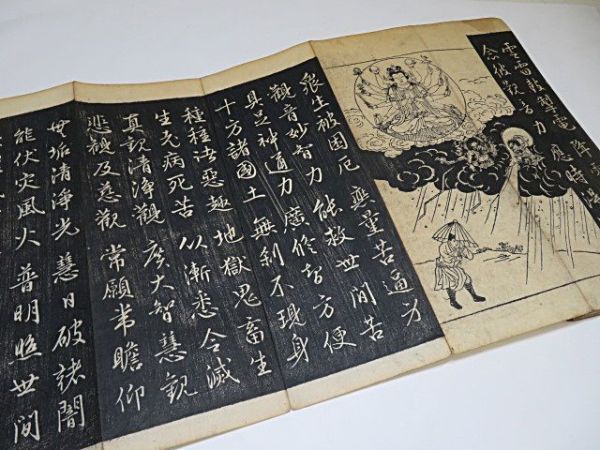 雲雷鼓掣電 降雹
念彼觀音力 應時消
衆生被困厄 無量苦逼身
觀音妙智力 能救世間苦
具足神通力 廣修智方便
十方諸國土 無刹不現身
種種諸惡趣 地獄鬼畜生
生老病死苦 以漸悉令滅
真觀清淨觀 廣大智慧觀
悲觀及慈觀 常願常瞻仰
無垢清淨光 慧日破諸闇
能伏災風火 普明照世間